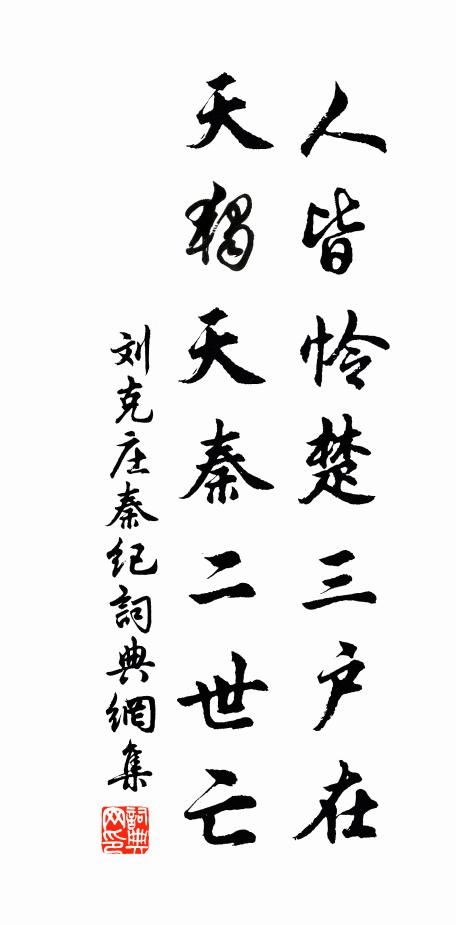 人皆怜楚三户在
天独天秦二世亡
刘克庄秦纪詞典網集
詞典网印